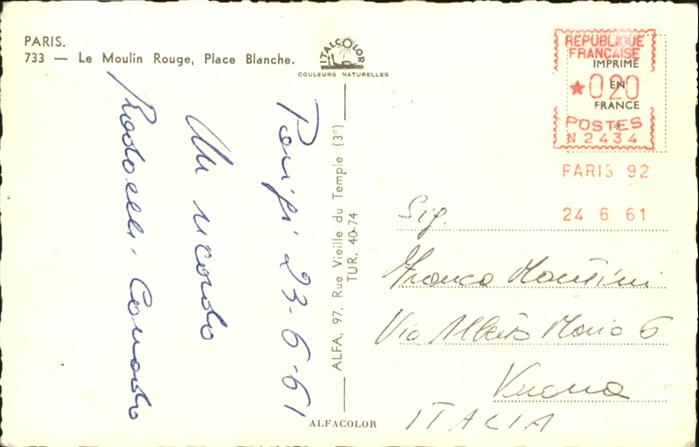 PARIS.
733 — Le Moulin Rouge, Place Blanche.
ITALCOLOR
COULEURS NATURELLES
REPUBLIQUE
FRANÇAISE
IMPRIMÉ
0,20
EN
FRANCE
POSTES
N 2434
PARIS 92
24 6 61
Parigi 23-6-61
Un ricordo
Corrado
ALFA, 97, Rue Vieille du Temple (3e)
TUR. 40-74
ALFACOLOR
Sig.
Franco Mantini
Via Alberto Mario 6
Verona
ITALIA